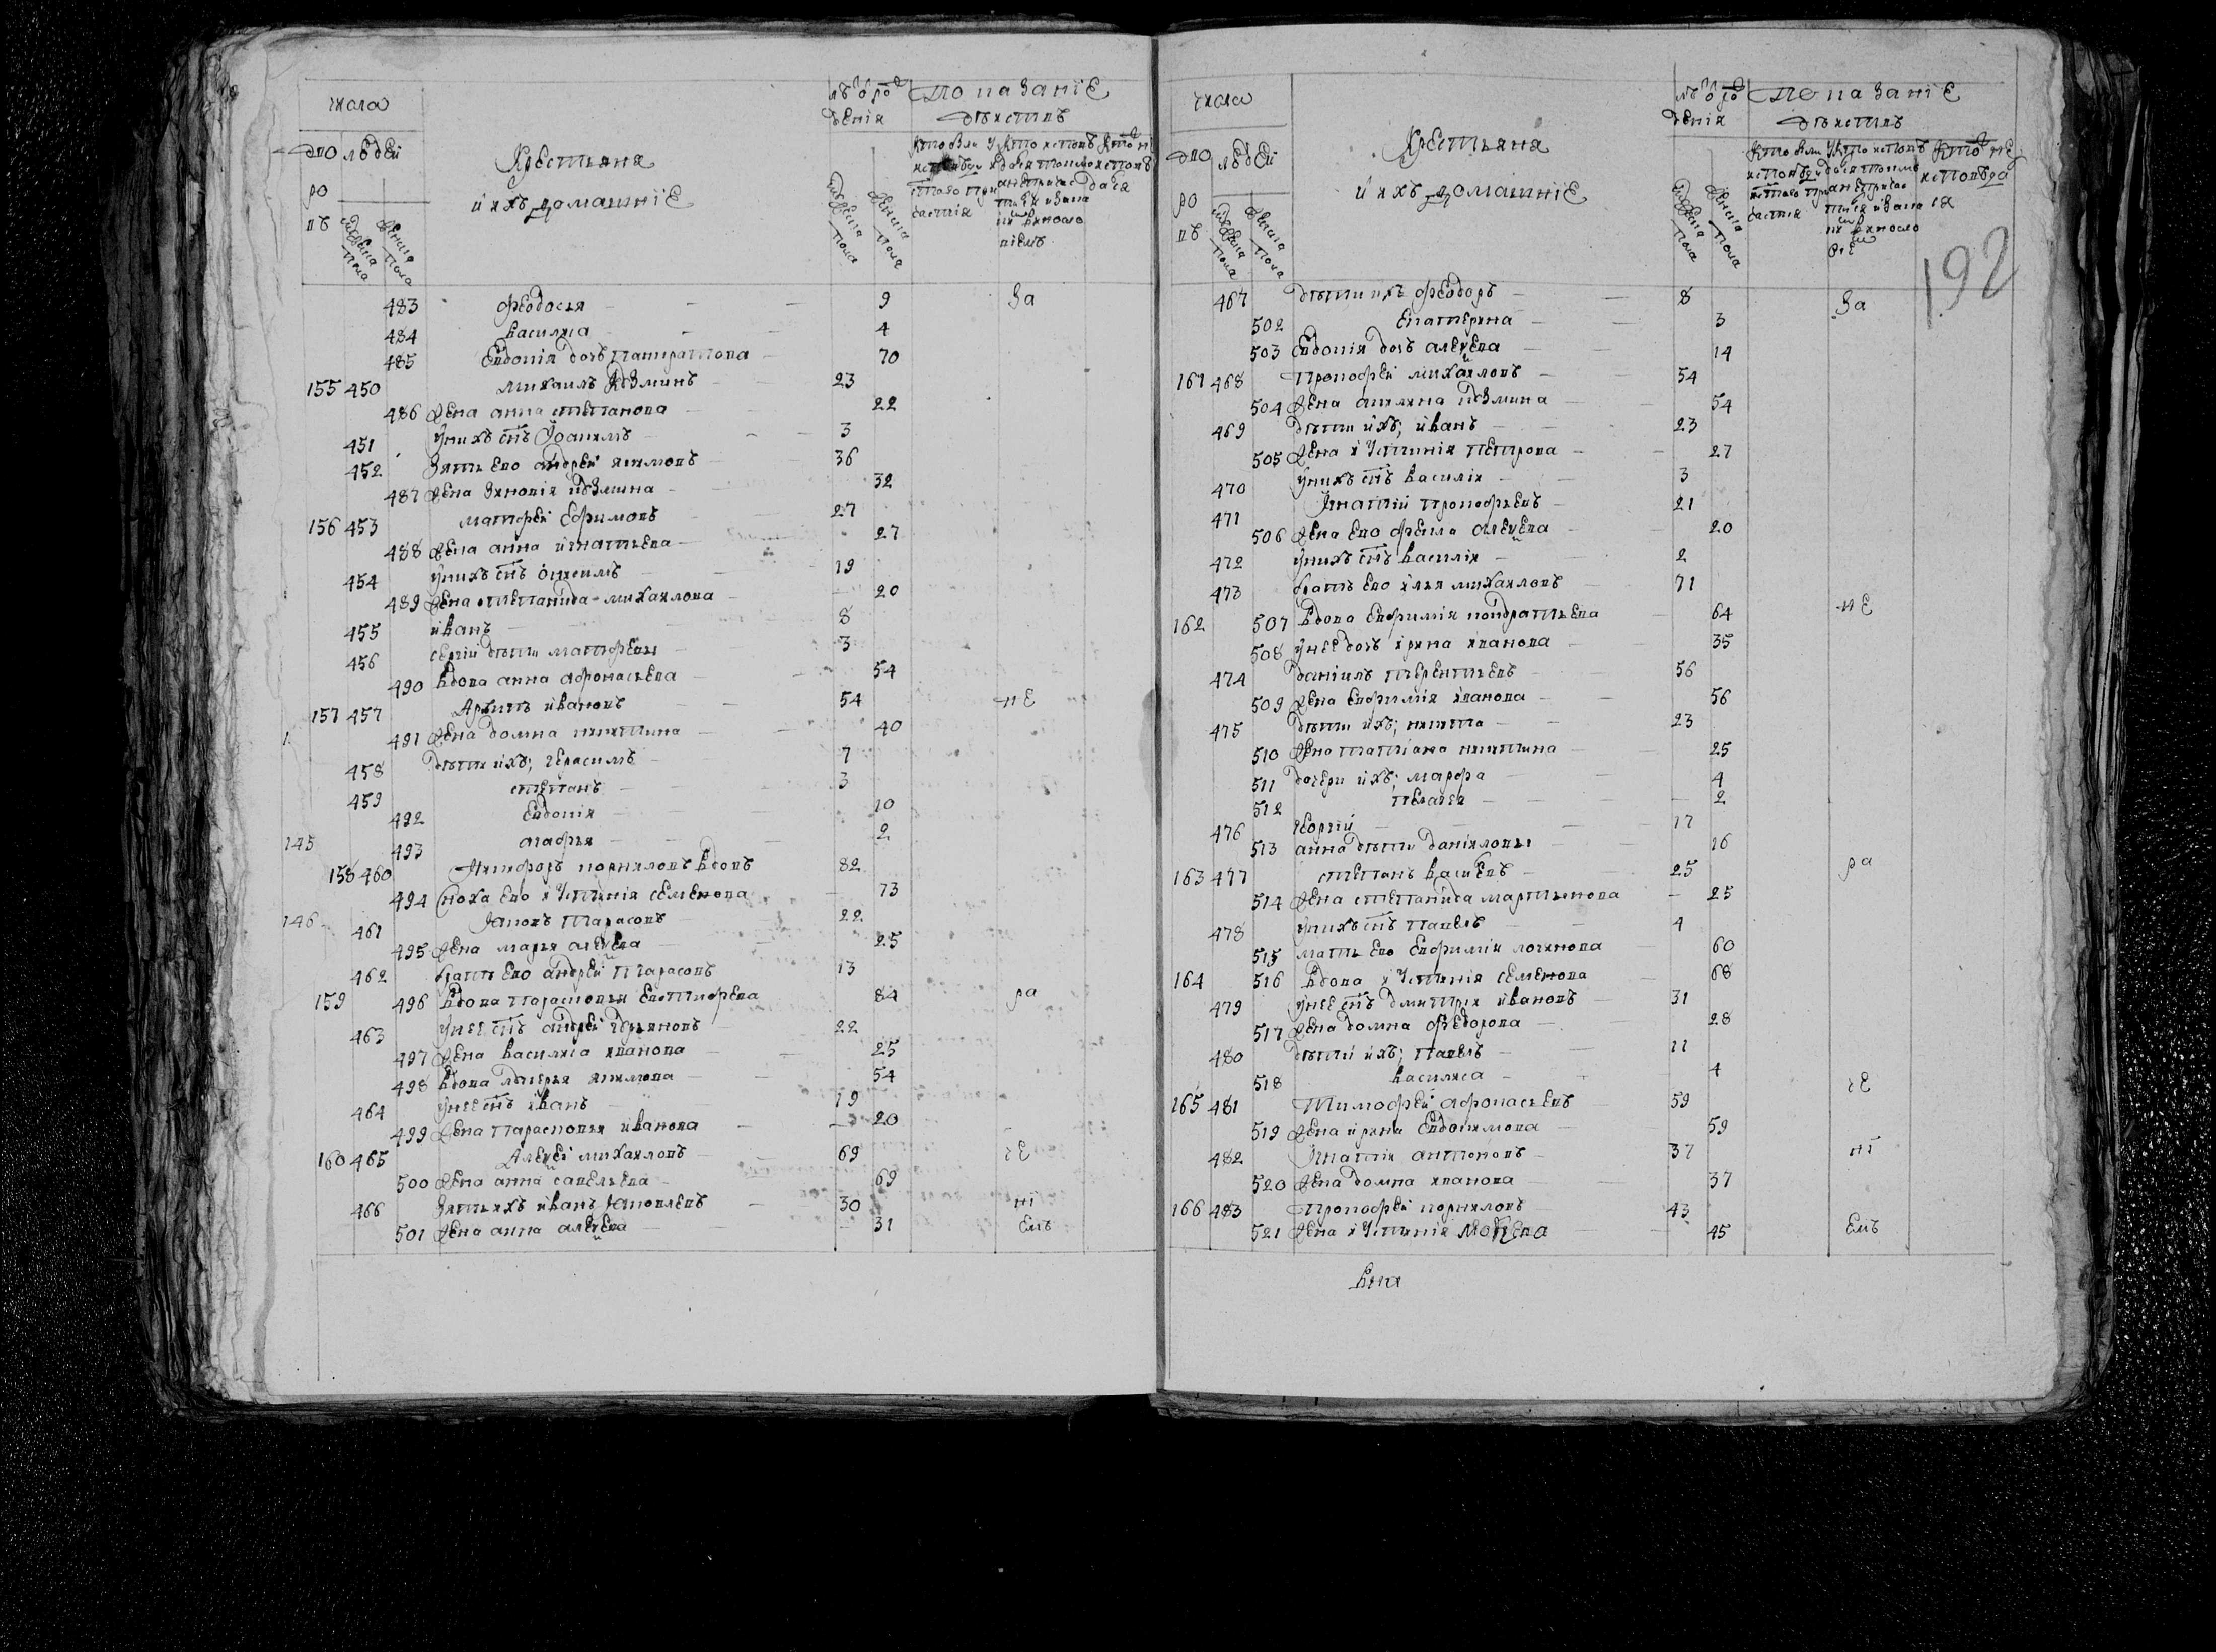 числа
дво
ро
въ
людей
мужеска пола
женска пола
Крестьяна
и ихъ домашніе
лѣтъ рож
денія
мужеска пола
женска пола
показаніе
дѣйствъ
483 Феодосья — 9 За
484 василиса — 4
485 Евдокія дочь панкратова — 70
155 450 михаилъ кузминъ — 23
486 жена анна степанова — 22
451 у нихъ сн҃ъ 3
452 зять ево андрей якимовъ — 36
487 жена зиновія кузмина — 32
156 453 матфей Ефимовъ — 27
488 жена анна игнатьева — 27
454 у нихъ сн҃ъ 19
489 жена степанида михаилова — 20
455 иванъ — 8
456 сергій дѣти матфеевы — 3
490 вдова анна афонасьева — 54
157 457 Архипъ ивановъ — 54 не
491 жена домна никитина — 40
458 дѣти ихъ; герасимъ — 7
459 степанъ — 3
492 Евдокія — 10
145 493 агафья — 2
158 460 Никифоръ корниловъ вдовъ 82
494 сноха ево иустинія семенова 73
146 461 Яковъ тарасовъ — 22
495 жена марья алеѯеева — 25
462 братъ ево андрей тарасовъ 13
159 496 вдова парасковья 84 ра
463 у нее сн҃ъ андрей 22
497 жена василиса иванова — 25
498 вдова лукерья якимова — 54
464 у нее сн҃ъ иванъ — 19
499 жена парасковья иванова — 20
160 465 Алеѯей михаиловъ — 69 че
500 жена анна савельева — 69
466 зять ихъ иванъ яковлевъ — 30 ні
501 жена анна алеѯеева — 31 емъ
числа
дво
ро
въ
людей
мужеска пола
женска пола
Крестьяна
и ихъ домашніе
лѣтъ рож
денія
мужеска пола
женска пола
показаніе
дѣйствъ
192
467 дѣти ихъ Феодоръ — 8 За
502 Екатерина — 3
503 Евдокія дочь алеѯеева 14
161 468 Прокофей михаиловъ — 54
504 жена акилина кузмина — 54
469 дѣти ихъ; иванъ — 23
505 жена иустинія петрова — 27
470 у нихъ сн҃ъ василій — 3
471 Игнатій прокофьевъ — 21
506 жена ево фекла алеѯеева — 20
472 у нихъ сн҃ъ василій — 2
473 братъ ево илья михаиловъ — 71
162 507 вдова Евфимія кондратьева 64 не
508 у нее дочь ирина иванова — 35
474 даніилъ терентьевъ — 56
509 жена Евфимія иванова — 56
475 дѣти ихъ; никита — 23
510 жена татіана никитина — 25
511 дочери ихъ; марфа — 4
512 пелагея — 2
476 георгій — 17
513 анна дѣти даниловы 16
163 477 степанъ васильевъ — 25 ра
514 жена степанида мартынова — 25
478 у нихъ сн҃ъ павелъ — 4
515 мать ево Евфимія логинова 60
164 516 вдова иустинія семенова — 68
479 у нее сн҃ъ дмитрій ивановъ — 31
517 жена домна федорова — 28
480 дѣти ихъ; павелъ — 11
518 василиса — 4
165 481 Тимофей афонасьевъ — 59 че
519 жена ирина Евдокимова — 59
482 Игнатій антоновъ — 37 ні
520 жена домна иванова — 37
166 483 Прокофей корниловъ 43
521 жена иустинія мокеева 45 емъ